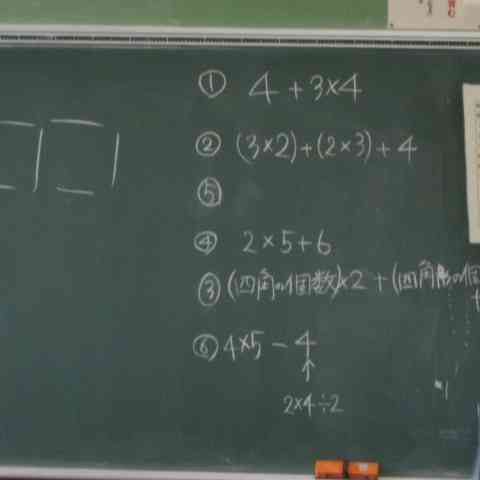 ① 4 + 3×4
② (3×2)+(2×3)+4
⑤
④ 2×5+6
③ (四角の個数)×2+(四角形の個
⑥ 4×5 - 4
↑
2×4÷2